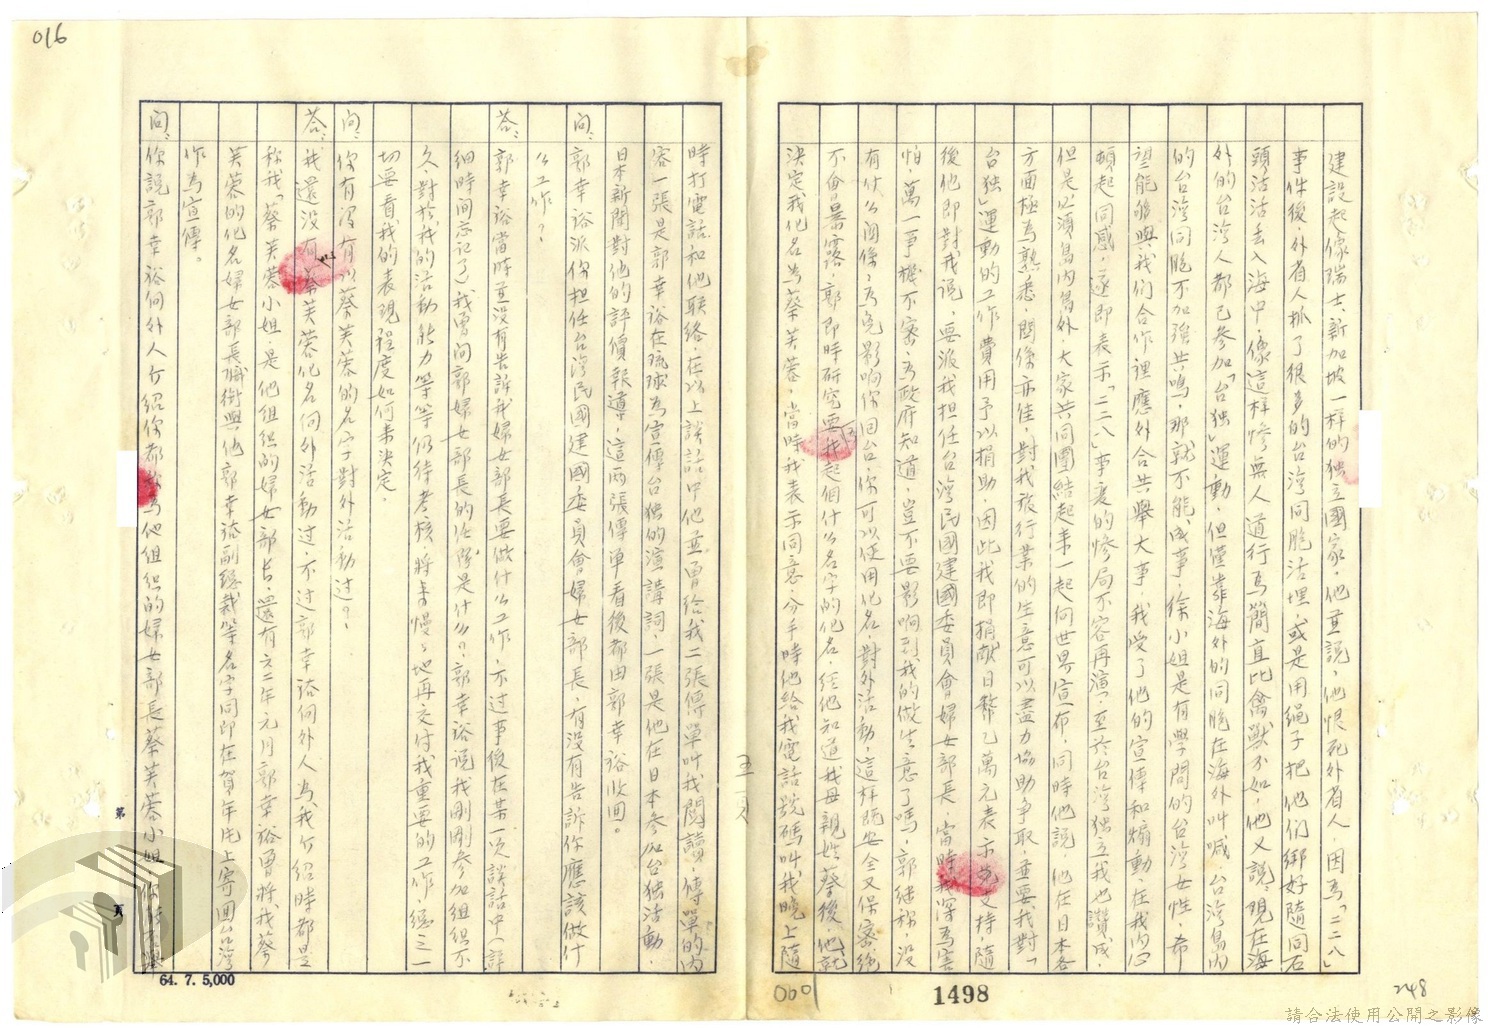 016
建設起像瑞士、新加坡一樣的独立國家，他並説，他恨死外省人，因爲「二二八」
事件後，外省人抓了很多的台湾同胞活埋，或是用绳子把他们绑好隨同石
頭活活丢入海中，像這样惨無人道行爲簡直比禽獸不如，他又説，現在海
外的台湾人都已参加「台独」運動，但僅靠海外的同胞在海外叫喊，台湾島内
的台湾同胞不加強共鳴，那就不能成事，徐小姐是有學問的台湾女性，希
望能够與我们合作裡應外合共舉大事，我受了他的宣傳和煽動，在我内心
頓起同感，遂即表示「二二八」事变的惨局不容再演，至於台湾独立我也讚成，
但是必須島内島外，大家共同團結起來一起向世界宣布，同時他説，他在日本各
方面極爲熟悉，関係亦佳，對我旅行業的生意可以盡力協助争取，並要我對「
台独」運動的工作費用予以捐助，因此我即捐献日幣乙萬元表示支持，隨
後他即對我説，要派我担任台湾民國建國委員會婦女部長，當時我深爲害
怕，萬一事機不密，爲政府知道，豈不要影响到我的做生意了嗎，郭继称，没
有什么関係，爲免影响你回台，你可以使用化名，對外活動，這样既安全又保密絕
不会暴露，郭即時研究要我起個什么名字的化名，経他知道我母親姓蔡後，他就
決定我化名爲蔡芙蓉，當時我表示同意，分手時他给我電話號碼叫我晚上隨
時打電話和他联络，在以上談話中他並曾给我二張傳單叫我閲讀，傳單的内
容一張是郭幸裕在琉球為宣傳台独的演講詞，一張是他在日本参加台独活動，
日本新聞對他的評價報導，這兩張傳单看後都由郭幸裕收回。
問：郭幸裕派你担任台湾民國建國委員會婦女部長，有没有告訴你應該做什
么工作？
答：郭幸裕當時並没有告訴我婦女部長要做什么工作，不过事後在某一次談話中（詳
細時间忘记了）我曾问郭婦女部長的任務是什么？郭幸裕説我剛剛参加組织不
久，對於我的活動能力等等仍待考核，將來慢慢地再交付我重要的工作，總之一
切要看我的表現程度如何來決定。
問：你有没有以蔡芙蓉的名字對外活動过？
答：我還没有以蔡芙蓉化名向外活動过，不过郭幸裕向外人為我介紹時都是
称我「蔡芙蓉小姐，是他組织的婦女部長，還有六二年元月郭幸裕曾將我蔡
芙蓉的化名婦女部長職銜與他郭幸裕副總裁等名字同印在賀年片上寄回台湾
作為宣傳。
問：你説郭幸裕向外人介紹你都称爲他組织的婦女部長蔡芙蓉小姐
五頁
第
頁
64. 7. 5,000
000
1498
248
請合法使用公開之影像